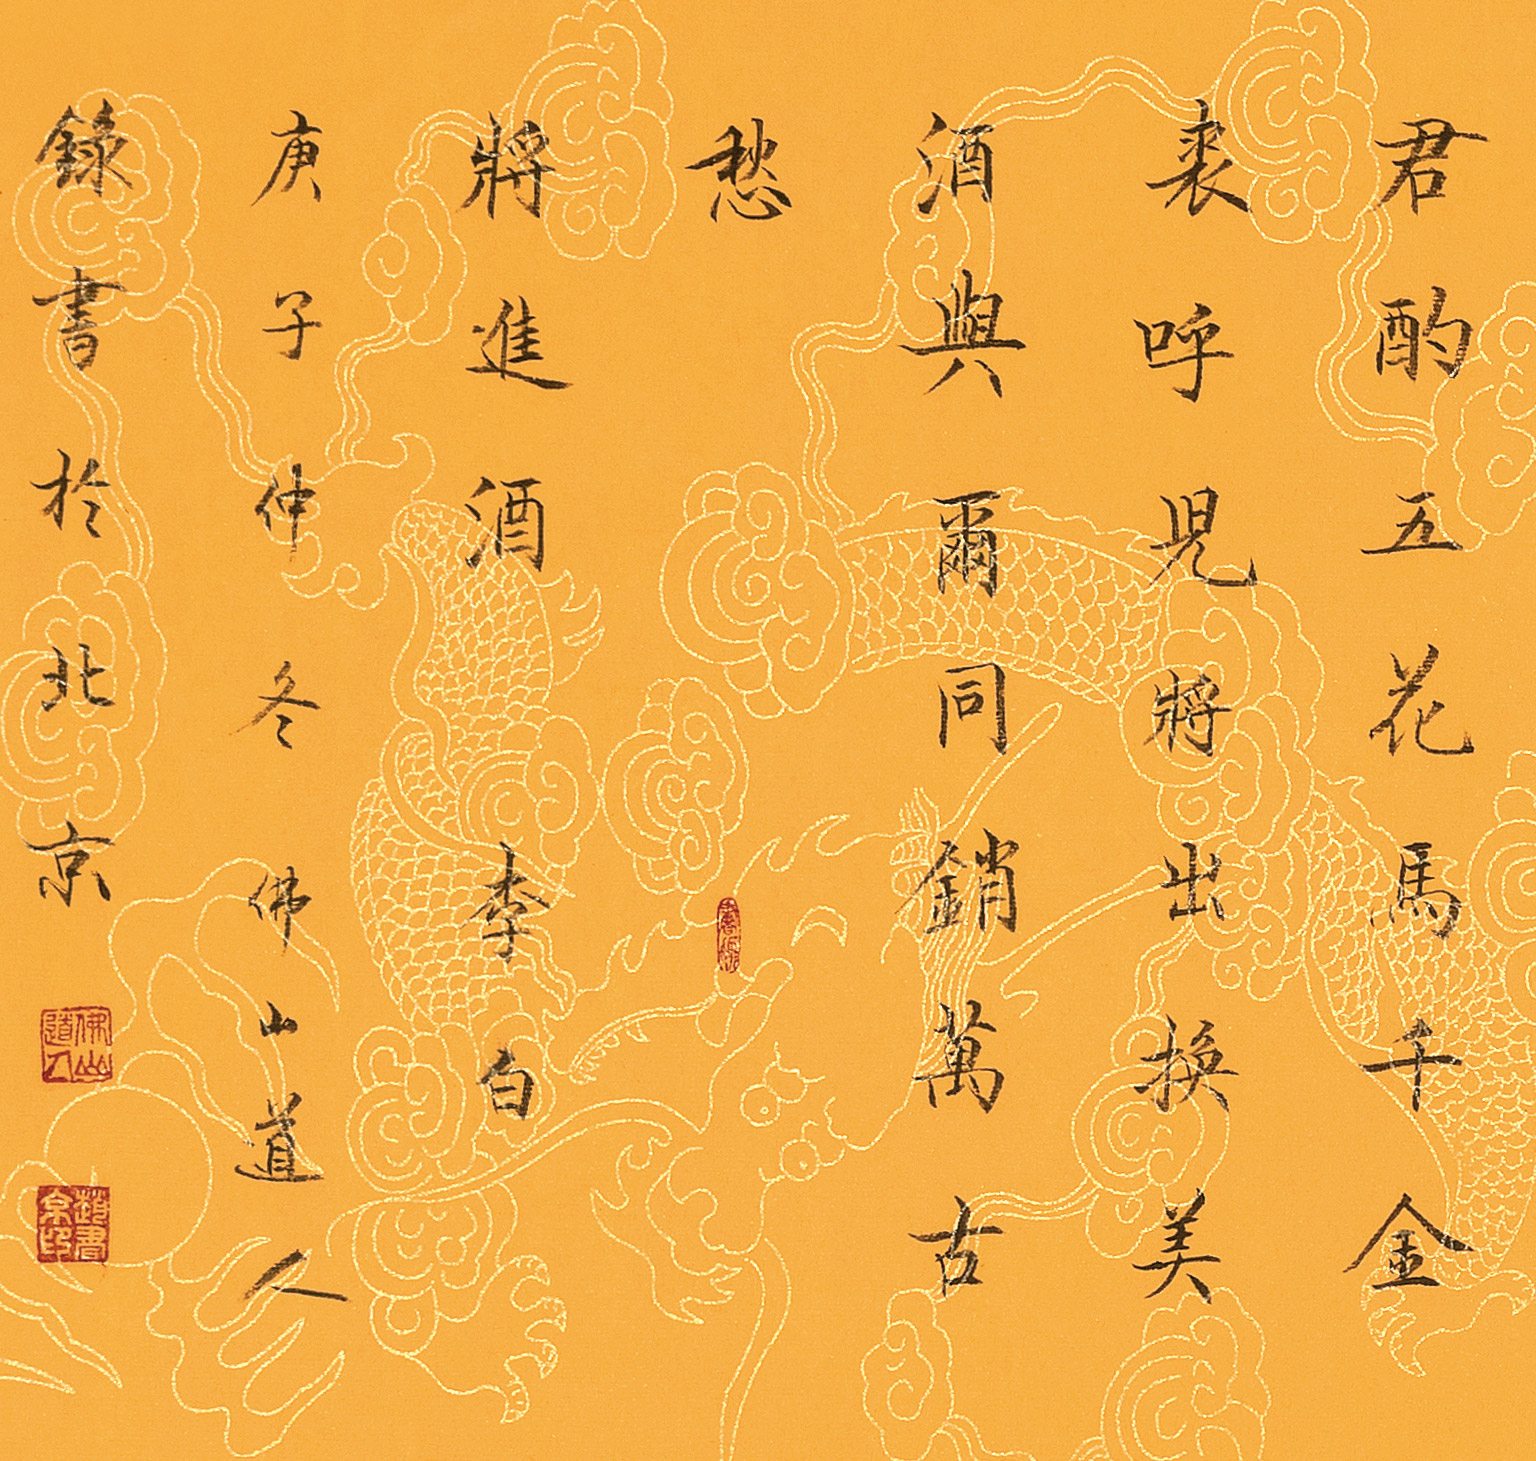 君酌五花馬千金
裘呼兒將出換美
酒與爾同銷萬古
愁
將進酒 李白
庚子仲冬佛山道人
錄書於北京
佛山道人